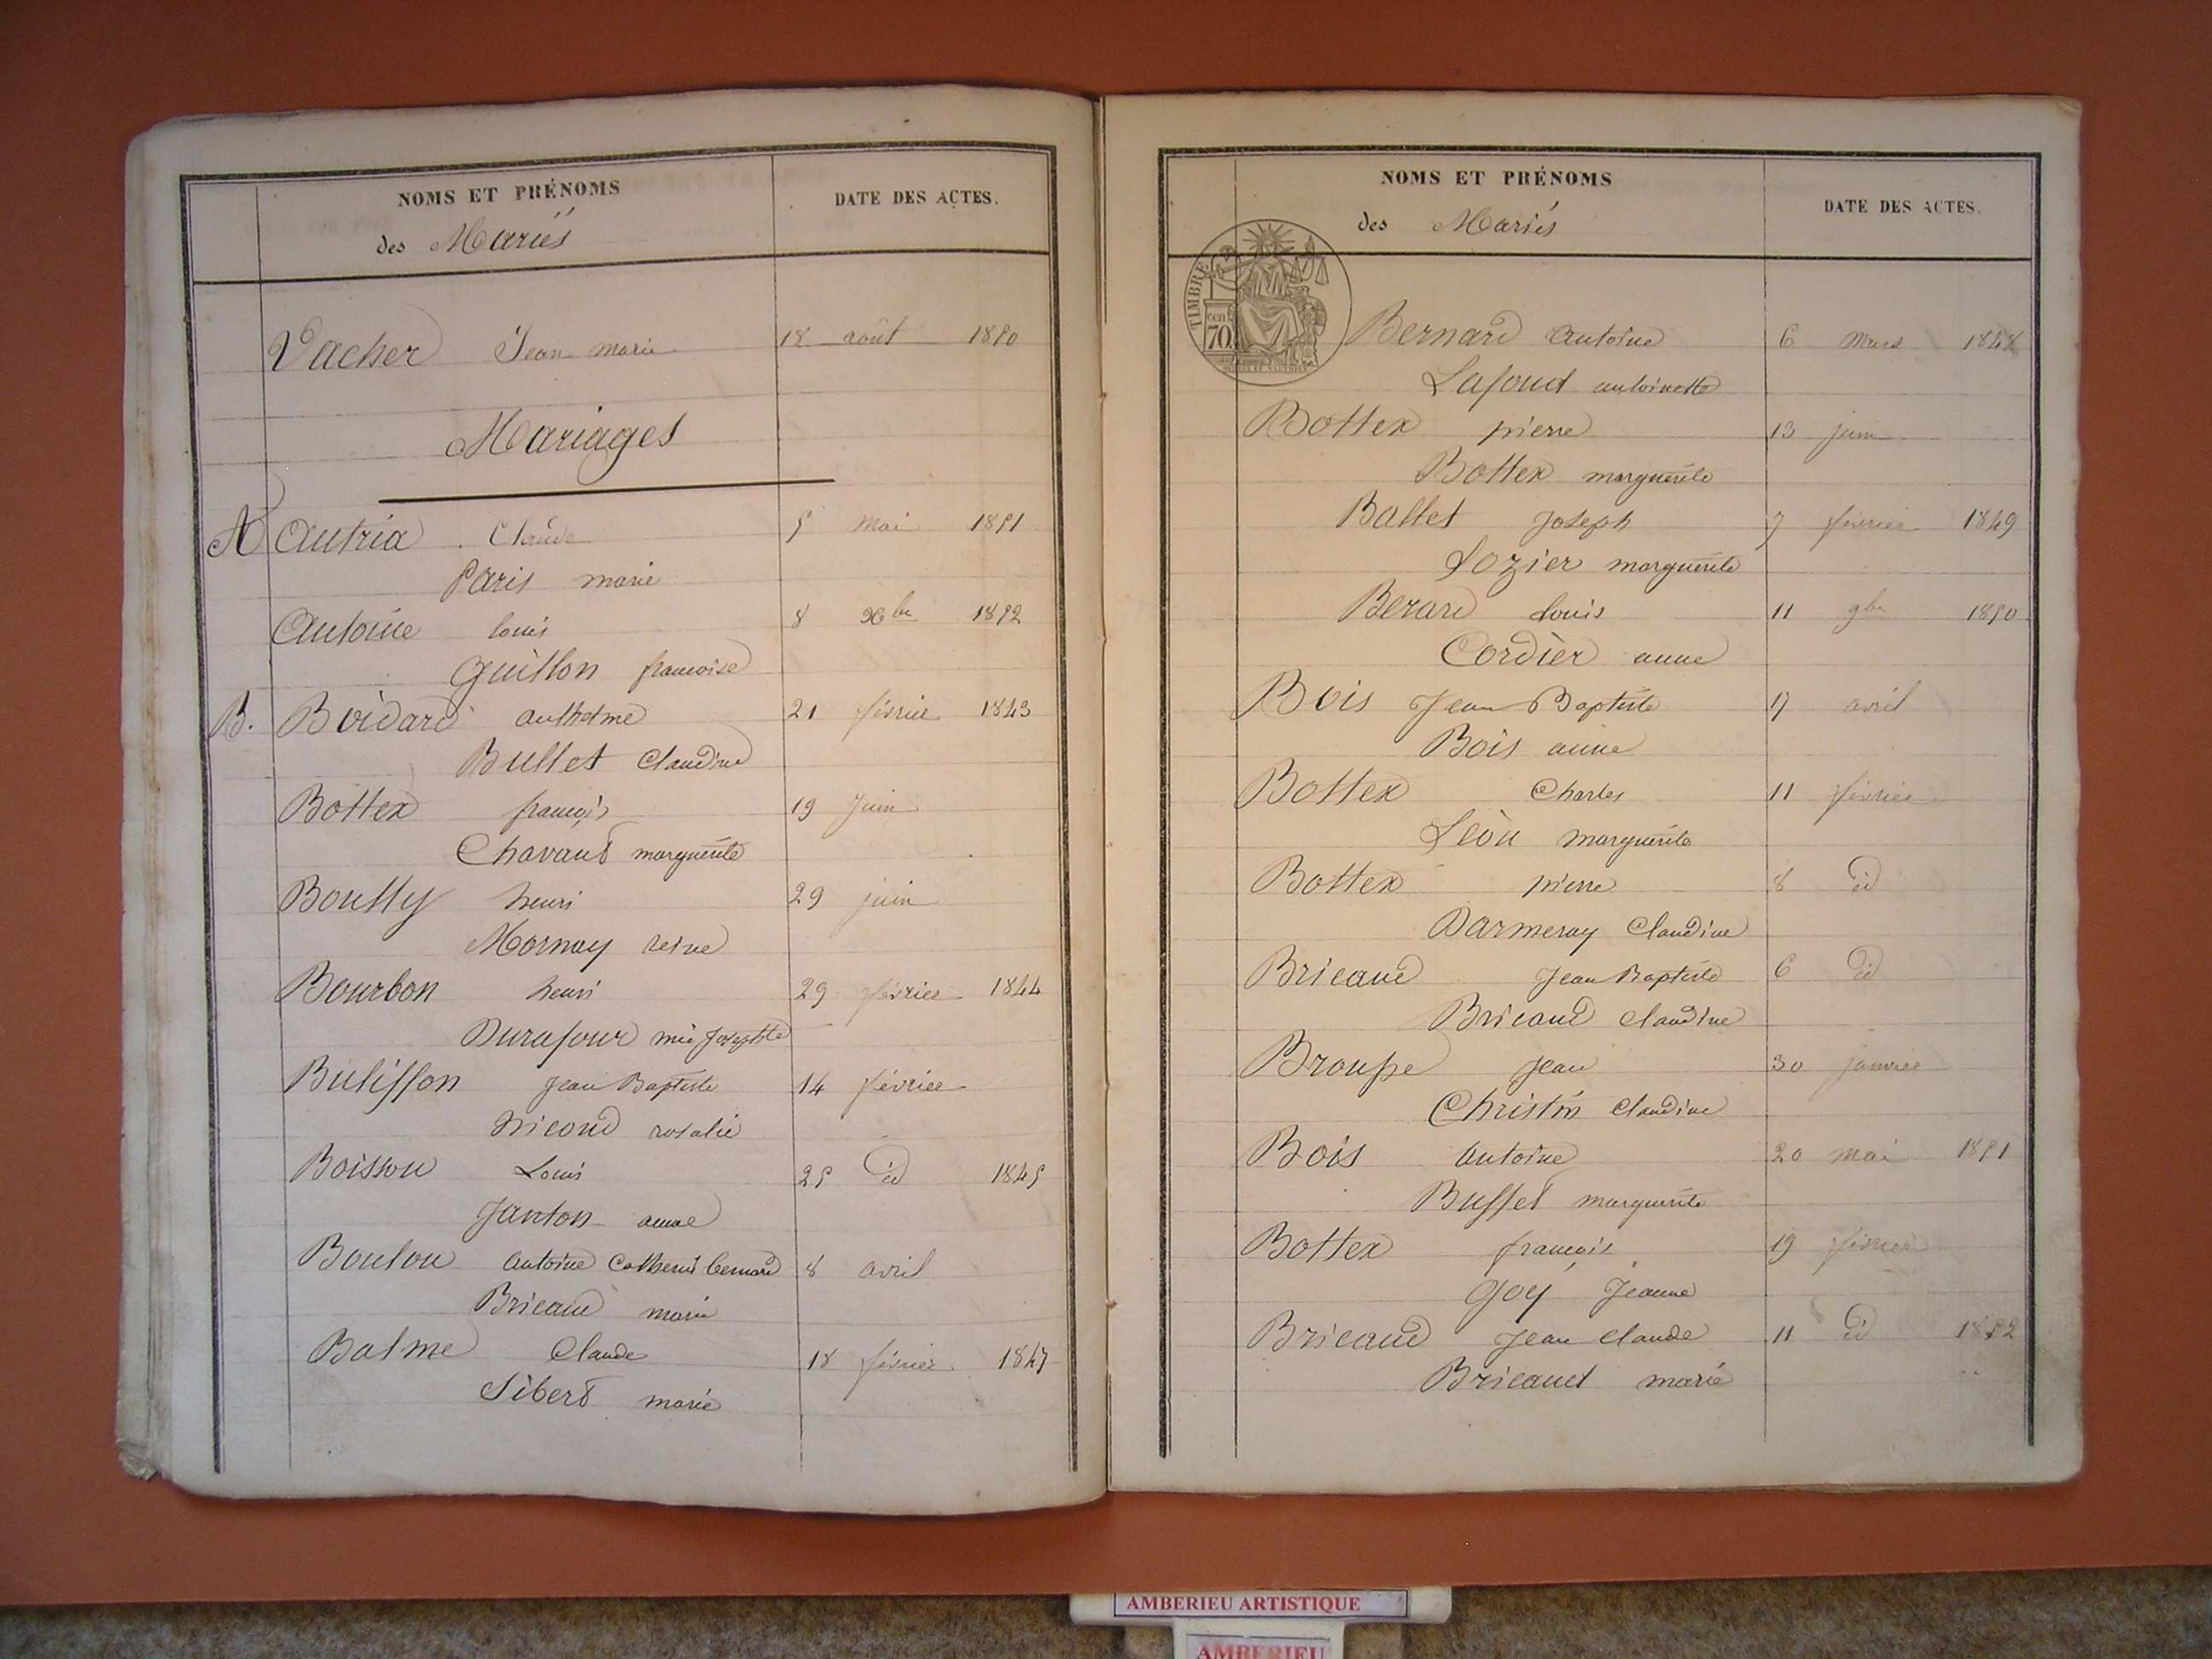 NOMS ET PRÉNOMS DATE DES ACTES.
des Mariés
Vacher Jean marie 18 août 1850
Mariages
A Autria Claude 5 mai 1851
Paris marie
Antoine louis 8 Xbre 1852
Guillon francoise
B. Boidard anthelme 21 février 1843
Bullet Claudine
Bottex françois 19 Juin
Chavant marguerite
Boutty henri 29 juin
Mornay reine
Bourbon henri 29 février 1844
Durafour mie Josephte
Bulisson Jean Baptiste 14 février
Nicoud rosalie
Boisson Louis 25 id 1845
Janton anne
Boulou Antoine Catherin bernard 8 avril
Bricaud marie
Balme Claude 18 février 1847
Sibert marie
NOMS ET PRÉNOMS DATE DES ACTES.
des Mariés
TIMBRE
cen
70
Bernard Antoine 6 Mars 1848
Lafont antoinette
Bottex pierre 13 juin
Bottex marguerite
Ballet Joseph 7 février 1849
Lozier marguerite
Berard Louis 11 9bre 1850
Cordier anne
Bois Jean Baptiste 17 avril
Bois anne
Bottex Charles 11 février
Léon marguerite
Bottex pierre 8 id
Darmeray Claudine
Bricaud Jean Baptiste 6 id
Bricaud claudine
Brousse Jean 30 janvier
Christin Claudine
Bois Antoine 20 mai 1851
Buffet marguerite
Bottex françois 19 février
Goy Jeanne
Bricaud Jean Claude 11 id 1852
Bricaud marie
AMBERIEU ARTISTIQUE
AMBERIEU